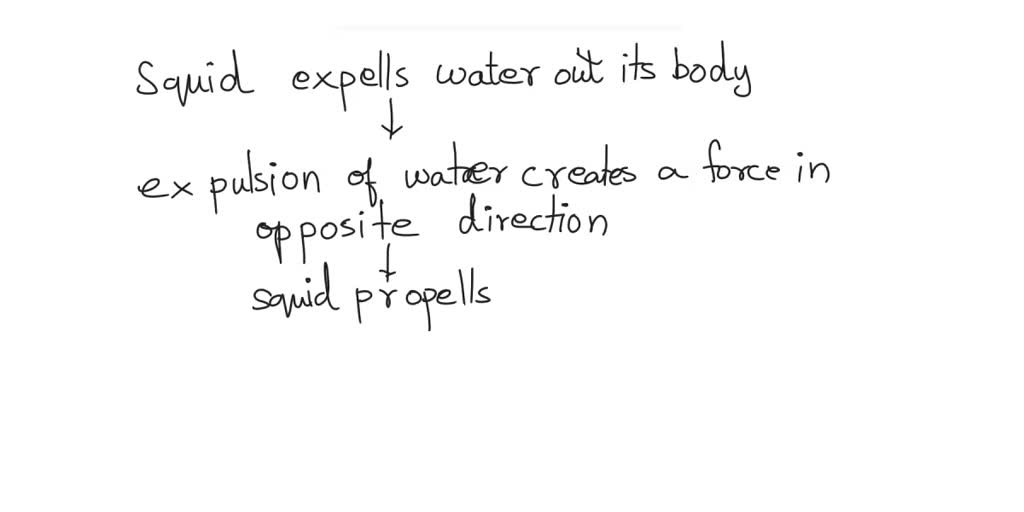 Squid expells water out its body
↓
expulsion of water creates a force in
opposite direction
↓
squid propells